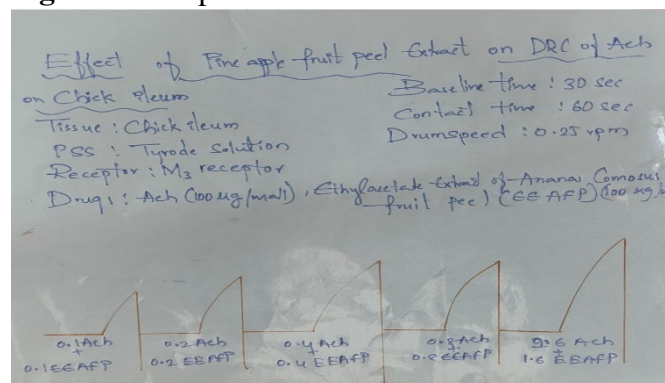 Effect of Pine apple fruit peel Extract on DRC of Ach
on Chick ileum
Baseline time : 30 sec
Contact time : 60 sec
Drumspeed : 0.25 rpm
Tissue : Chick ileum
PSS : Tyrode solution
Receptor : M3 receptor
Drugs : Ach (100 ug/ml), Ethylacetate Extract of Ananas Comosus
fruit peel (EEAFP) (100 ug/
0.1 Ach
+
0.1 EEAFP
0.2 Ach
+
0.2 EEAFP
0.4 Ach
+
0.4 EEAFP
0.8 Ach
+
0.8 EEAFP
Ach
+
1.6 EEAFP